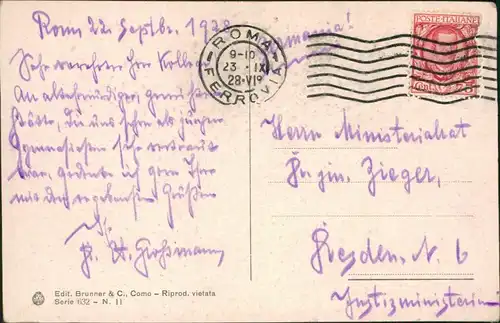 Rom 22. Septbr. 1928
Germania!
Sehr verehrter Herr Kollege
An altehrwürdiger, geweihter
Stätte, die uns schon als jungen
Gymnasiasten sehr vertraut
war, gedenke ich gern Ihrer
mit den ergebensten Grüßen
Ihr
Dr. A. Großmann
ROMA
9-10
23 · IX
28 · VIº
FERROVIA
POSTE · ITALIANE
Herrn Ministerialrat
Zieger,
Dresden. N. 6
Justizministerium
Edit. Brunner & C., Como – Riprod. vietata
Serie 632 - N. 11